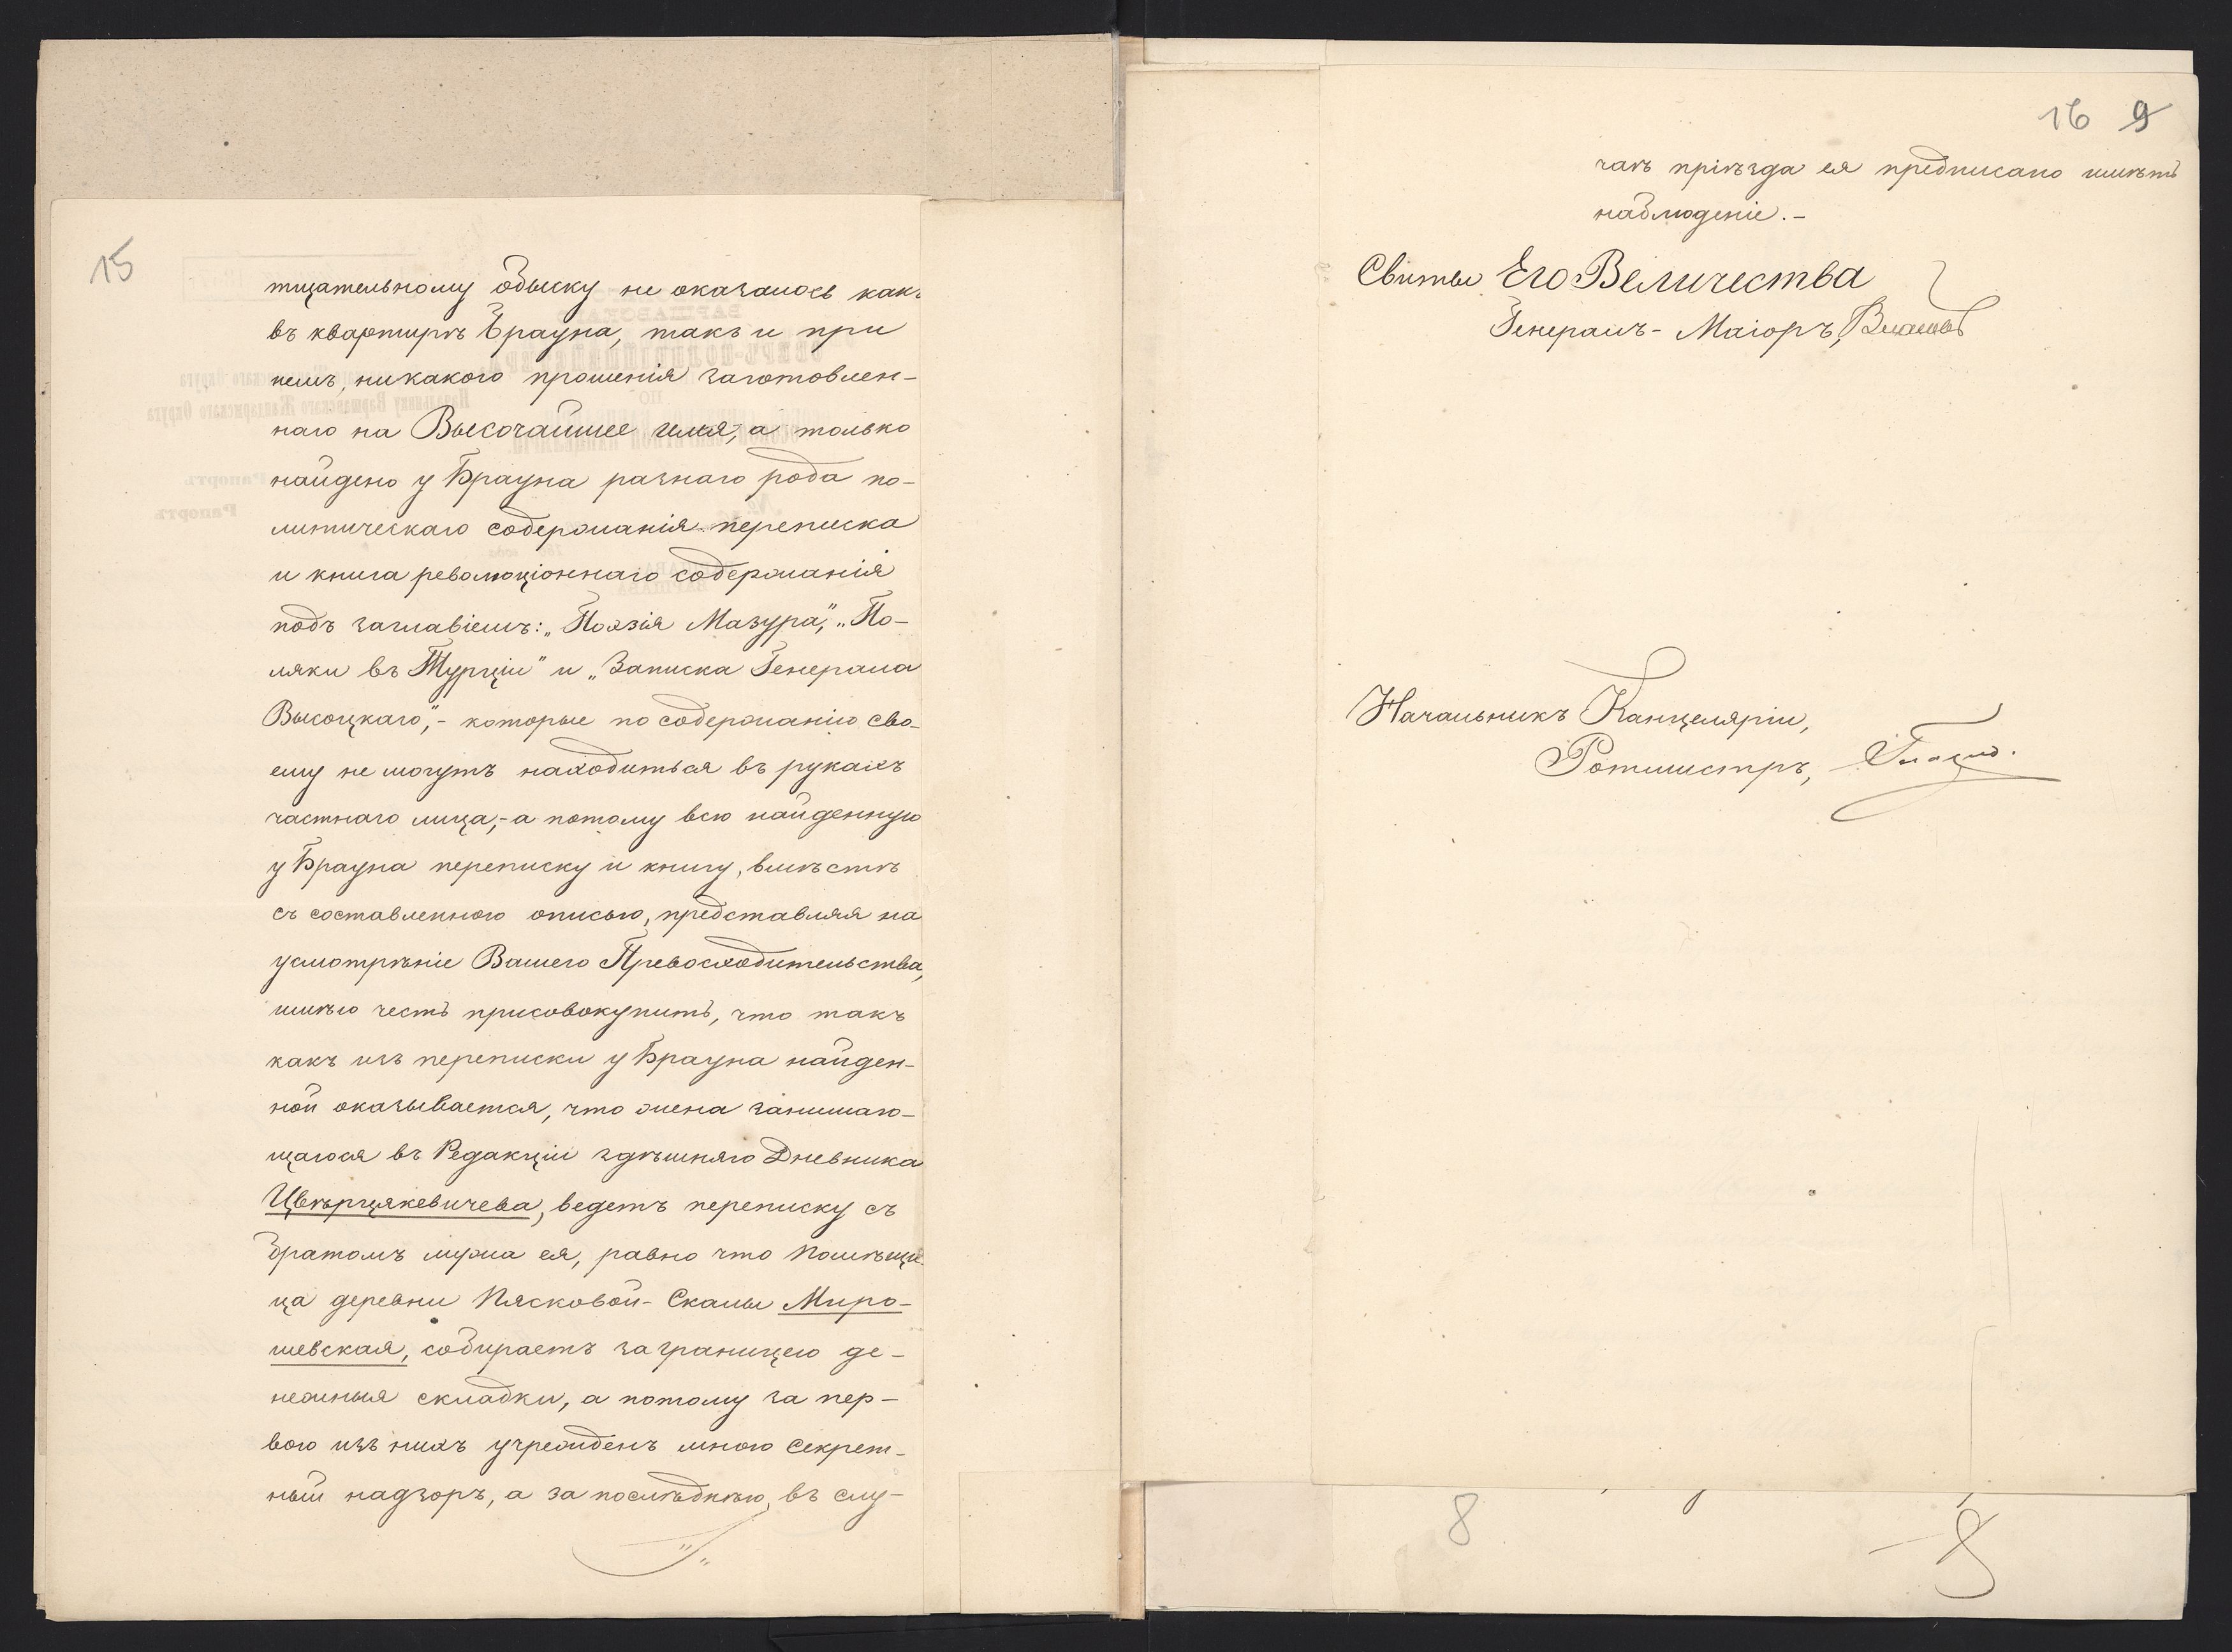 15
тщательному обыску не оказалось какъ
въ квартирѣ Брауна, такъ и при
немъ, никакого прошенія заготовлен-
наго на Высочайшее имя, а только
найдено у Брауна разнаго рода по-
литическаго содержанія переписка
и книга революціоннаго содержанія
подъ заглавіемъ: „Поэзія Мазура", „По-
ляки въ Турціи" и „Записка Генерала
Высоцкаго", - которые по содержанію сво-
ему не могутъ находиться въ рукахъ
частнаго лица, - а потому всю найденную
у Брауна переписку и книгу, вмѣстѣ
съ составленною описью, представляя на
усмотрѣніе Вашего Превосходительства,
имѣю честь присовокупить, что такъ
какъ изъ переписки у Брауна найден-
ной оказывается, что жена занимаю-
щагося въ Редакціи здѣшняго Дневника
Цвѣрцякевичева, ведетъ переписку съ
братомъ мужа ея, равно что помѣщи-
ца деревни Пясковой-Скалы Миро-
шевская, собираетъ за границею де-
нежныя складки, а потому за пер-
вою изъ нихъ учрежденъ мною секрет-
ный надзоръ, а за послѣднею, въ слу-
16 9
чаѣ пріѣзда ея предписано имѣть
наблюденіе.-
Свиты Его Величества
Генералъ-Маіоръ, Власовъ
Начальникъ Канцеляріи,
Ротмистръ,
8
8